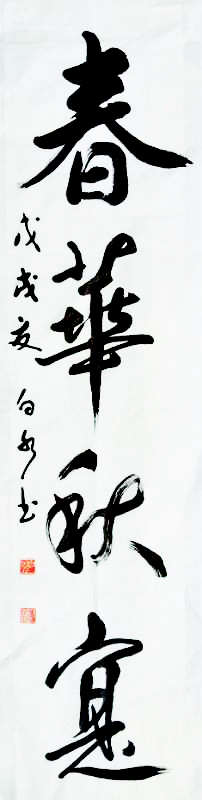 春華秋實
戊戌夏白水书